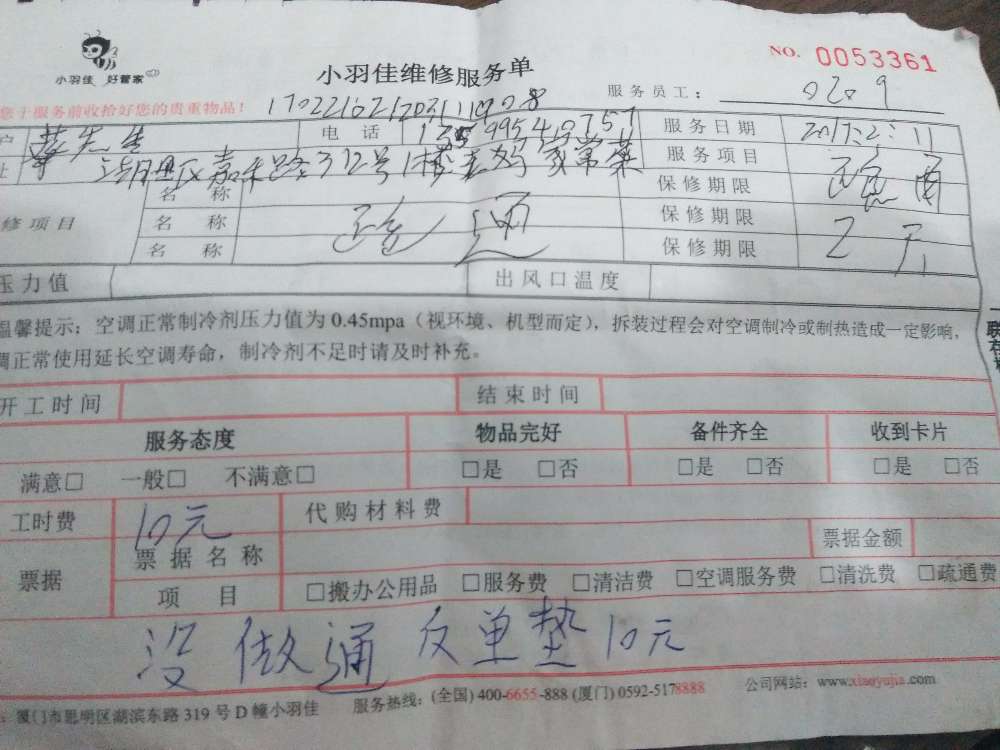 小羽佳 好管家
小羽佳维修服务单
NO. 0053361
您于服务前收拾好您的贵重物品!
服务员工: 0209
先生 电话 服务日期 2017.2.11
嘉禾路312号1楼 家常菜 服务项目
名称 保修期限
修项目 名称 通 保修期限
名称 保修期限 2天
压力值 出风口温度
温馨提示:空调正常制冷剂压力值为0.45mpa(视环境、机型而定),拆装过程会对空调制冷或制热造成一定影响,
调正常使用延长空调寿命,制冷剂不足时请及时补充。
开工时间 结束时间
服务态度 物品完好 备件齐全 收到卡片
满意□ 一般□ 不满意□ □是 □否 □是 □否 □是 □否
工时费 10元 代购材料费
票据 票据名称 票据金额
项目 □搬办公用品 □服务费 □清洁费 □空调服务费 □清洗费 □疏通费
没做通 反单垫10元
厦门市思明区湖滨东路319号D幢小羽佳 服务热线:(全国)400-6655-888(厦门)0592-5178888 公司网站:www.xiaoyujia.com